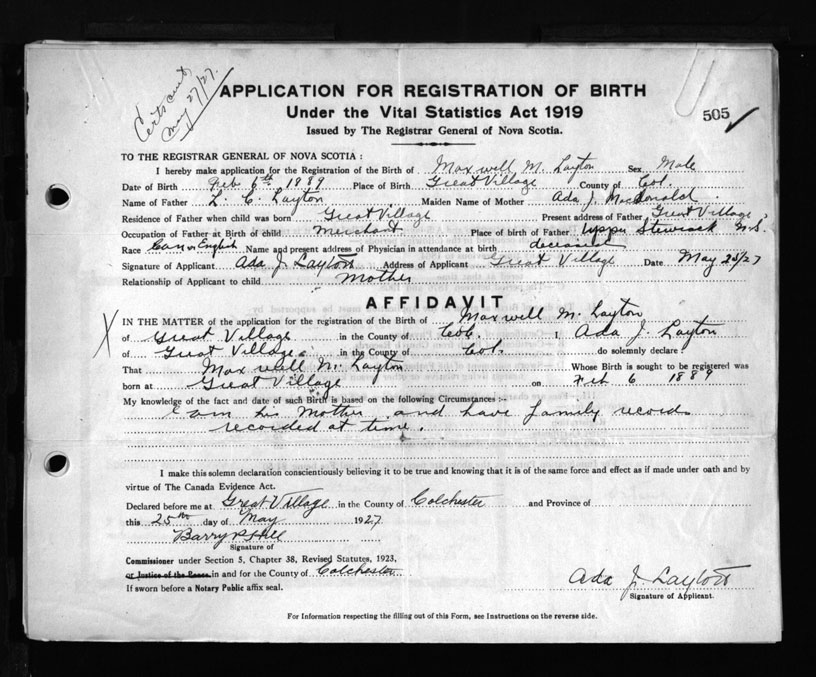 Certs sent
May 27/27.
APPLICATION FOR REGISTRATION OF BIRTH
Under the Vital Statistics Act 1919
Issued by The Registrar General of Nova Scotia.
505
TO THE REGISTRAR GENERAL OF NOVA SCOTIA :
I hereby make application for the Registration of the Birth of Maxwell M. Layton Sex Male
Date of Birth Feb 6th 1889 Place of Birth Great Village County of Col.
Name of Father L. C. Layton Maiden Name of Mother Ada J. MacDonald
Residence of Father when child was born Great Village Present address of Father Great Village
Occupation of Father at Birth of child Merchant Place of birth of Father Upper Stewiack N.S.
Race Can or English Name and present address of Physician in attendance at birth deceased
Signature of Applicant Ada J. Layton Address of Applicant Great Village Date May 25/27
Relationship of Applicant to child Mother
AFFIDAVIT
IN THE MATTER of the application for the registration of the Birth of Maxwell M. Layton
X of Great Village in the County of Col. I, Ada J. Layton
of Great Village in the County of Col. do solemnly declare :
That Maxwell M. Layton Whose Birth is sought to be registered was
born at Great Village on Feb 6 1889
My knowledge of the fact and date of such Birth is based on the following Circumstances :-
I am his Mother and have family records
recorded at time.
I make this solemn declaration conscientiously believing it to be true and knowing that it is of the same force and effect as if made under oath and by
virtue of The Canada Evidence Act.
Declared before me at Great Village in the County of Colchester and Province of
this 25th day of May 1927
Barry Hill
Signature of
Commissioner under Section 5, Chapter 38, Revised Statutes, 1923,
or Justice of the Peace in and for the County of Colchester
If sworn before a Notary Public affix seal.
Ada J. Layton
Signature of Applicant.
For Information respecting the filling out of this Form, see Instructions on the reverse side.